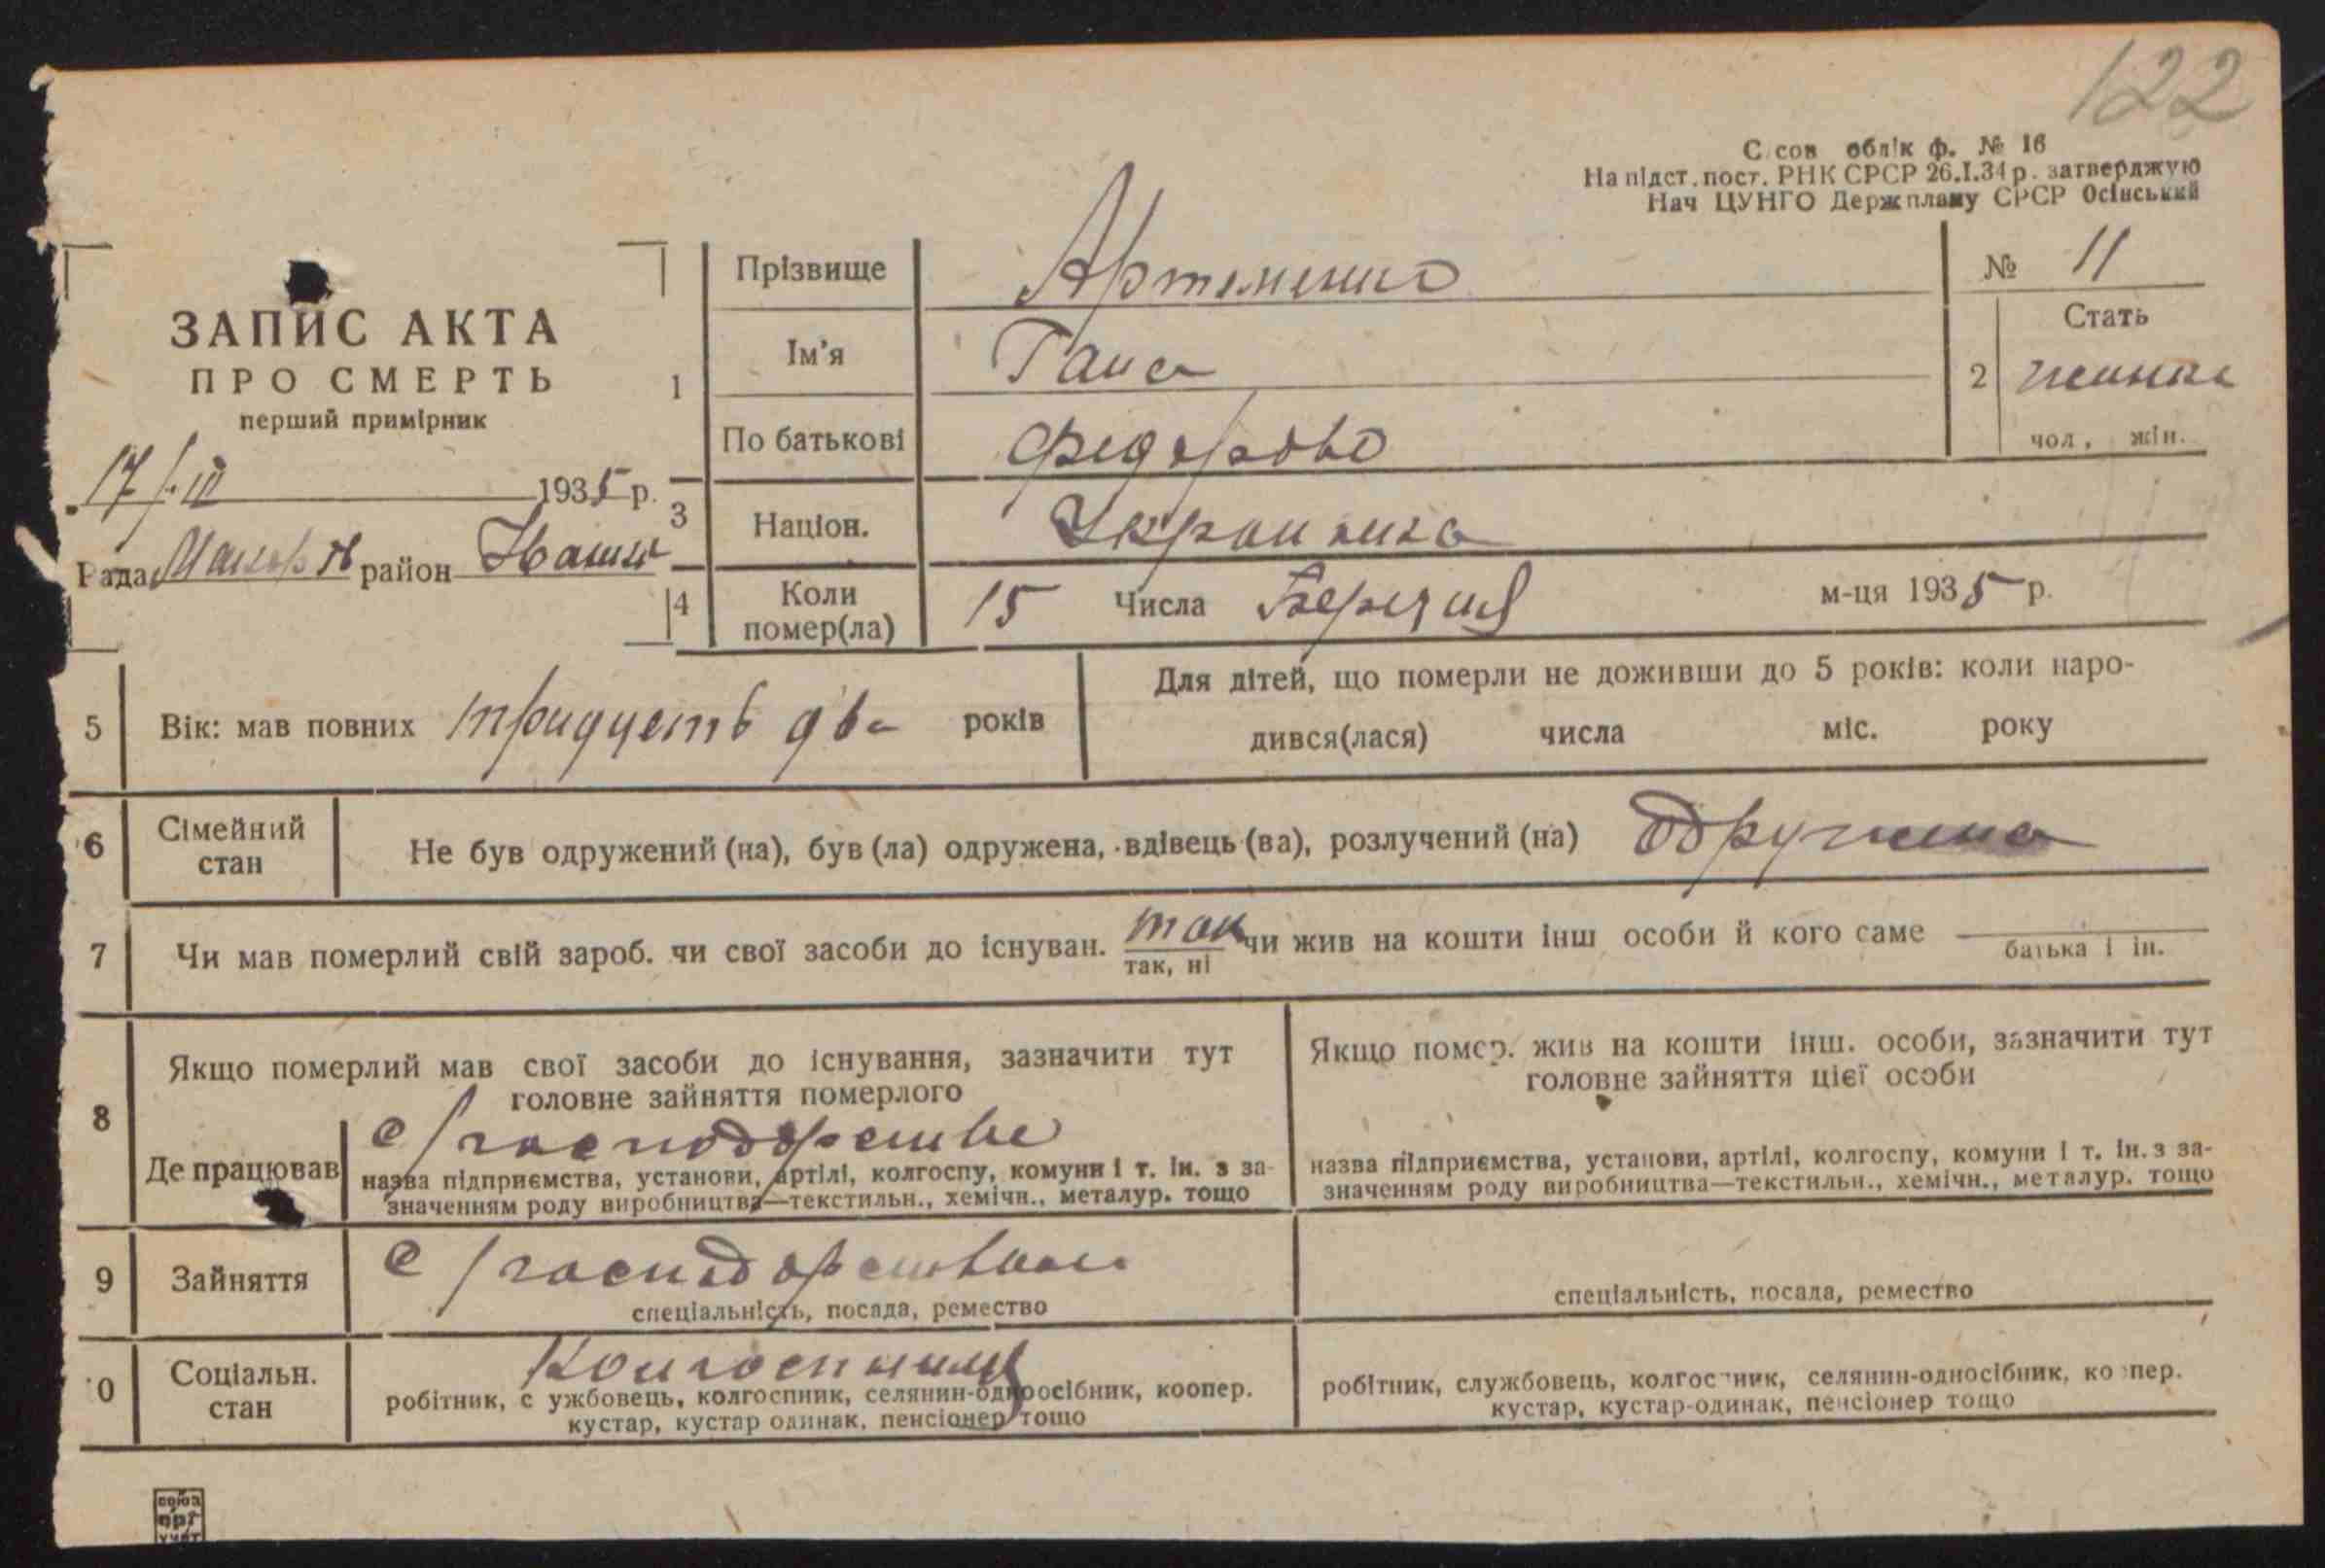 122
С сов облік ф. № 16
На підст. пост. РНК СРСР 26.I.34 р. затверджую
Нач ЦУНГО Держплану СРСР Осінський
№ 11
ЗАПИС АКТА
ПРО СМЕРТЬ
перший примірник
17/III 1935 р.
Рада район
1 Прізвище Артеменко
Ім'я Ганна
По батькові Федоровно
2 Стать жінка
чол., жін.
3 Націон. Украинка
4 Коли помер(ла) 15 Числа Березня м-ця 1935 р.
5 Вік: мав повних тридцеть два років
Для дітей, що померли не доживши до 5 років: коли наро-
дився(лася) числа міс. року
6 Сімейний стан Не був одружений (на), був (ла) одружена, вдівець (ва), розлучений (на) одружена
7 Чи мав померлий свій зароб. чи свої засоби до існуван. так чи жив на кошти інш особи й кого саме
так, ні батька і ін.
8 Якщо померлий мав свої засоби до існування, зазначити тут
головне зайняття померлого
Де працював с/господорстве
назва підприємства, установи, артілі, колгоспу, комуни і т. ін. з за-
значенням роду виробництва—текстильн., хемічн., металур. тощо
Якщо помер. жив на кошти інш. особи, зазначити тут
головне зайняття цієї особи
назва підприємства, установи, артілі, колгоспу, комуни і т. ін. з за-
значенням роду виробництва—текстильн., хемічн., металур. тощо
9 Зайняття с/господорством
спеціальність, посада, ремество
спеціальність, посада, ремество
0 Соціальн. стан Колгоспниця
робітник, с ужбовець, колгоспник, селянин-одноосібник, коопер.
кустар, кустар одинак, пенсіонер тощо
робітник, службовець, колгоспник, селянин-односібник, ко пер.
кустар, кустар-одинак, пенсіонер тощо
союз
орг
учет